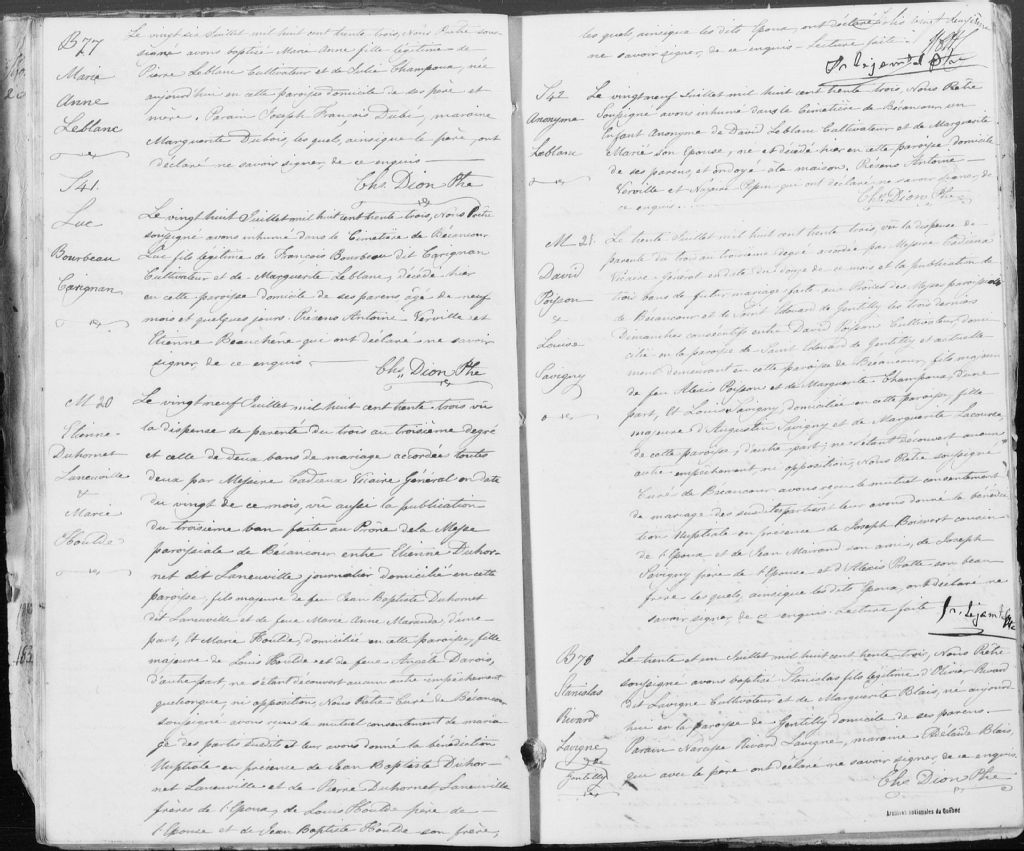 B77
Marie
Anne
Leblanc
Le vingt six Juillet mil huit cent trente trois, Nous Prêtre sous-
signé avons baptisé Marie Anne fille légitime de
Pierre Leblanc Cultivateur et de Julie Champoux, née
aujourd'hui en cette paroisse domicile de ses père et
mère. Parain Joseph François Dubé, maraine
Marguerite Dubois, les quels, ainsi que le père, ont
déclaré ne savoir signer, de ce enquis
Chs. Dion Ptre
S41.
Luc
Bourbeau
Carignan
Le vingt huit Juillet mil huit cent trente trois, Nous Prêtre
soussigné avons inhumé dans le Cimetière de Bécancour
Luc fils légitime de François Bourbeau dit Carignan
Cultivateur et de Marguerite Leblanc, décédé hier
en cette paroisse domicile de ses parens âgé de neuf
mois et quelques jours. Présens Antoine Verville et
Etienne Beauchène qui ont déclaré ne savoir
signer, de ce enquis.
Chs. Dion Ptre
M 20
Etienne
Duhornet
Laneuville
&
Marie
Houlde
Le vingt neuf Juillet mil huit cent trente trois vû
la dispense de parenté du trois au troisième degré
et celle de deux bans de mariage accordée toutes
deux par Messire Cadieux Vicaire Général en date
du vingt de ce mois, vû aussi la publication
du troisième ban faite au Prône de la Messe
paroissiale de Bécancour entre Etienne Duhor-
net dit Laneuville journalier domicilié en cette
paroisse, fils majeur de feu Jean Baptiste Duhornet
dit Laneuville et de feue Marie Anne Maranda, d'une
part, Et Marie Houlde, domiciliée en cette paroisse, fille
majeure de Louis Houlde et de feue Angèle Darois,
d'autre part, ne s'étant découvert aucun autre empêchement
quelconque, ni opposition, Nous Prêtre Curé de Bécancour
soussigné avons reçu le mutuel consentement de maria-
ge des partis susdits et leur avons donné la bénédiction
Nuptiale en présence de Jean Baptiste Duhor-
net Laneuville et de Pierre Duhornet Laneuville
frères de l'Epoux, de Louis Houlde père de
l'Epouse et de Jean Baptiste Houlde son frère,
les quels, ainsi que les dits Epoux, ont déclaré
ne savoir signer, de ce enquis. Lecture faite.
S42
Anonyme
Leblanc
Le vingt neuf Juillet mil huit cent trente trois, Nous Prêtre
Soussigné avons inhumé dans le Cimetière de Bécancour un
Enfant Anonyme de David Leblanc Cultivateur et de Marguerite
Marie son Epouse, né et décédé hier en cette paroisse domicile
de ses parens, et ondoyé à la maison. Présens Antoine
Verville et Pepin qui ont déclaré ne savoir signer, de
ce enquis.
Chs. Dion Ptre
M 21.
David
Poisson
&
Louise
Savigny
Le trente Juillet mil huit cent trente trois, vû la dispense de
parenté du trois au troisième degré accordée par Messire Cadieux
Vicaire Général en date du de ce mois et la publication de
trois bans de futur mariage faite aux Prônes des Messes paroissiales
de Bécancour et de Saint Edouard de Gentilly les trois derniers
Dimanches consécutifs entre David Poisson Cultivateur, domi-
cilié en la paroisse de Saint Edouard de Gentilly et actuelle-
ment demeurant en cette paroisse de Bécancour, fils majeur
de feu Alexis Poisson et de Marguerite Champoux, d'une
part, Et Louise Savigny, domiciliée en cette paroisse, fille
majeure d'Augustin Savigny et de Marguerite Lacourse
de cette paroisse, d'autre part; ne s'étant découvert aucun
autre empêchement, ni opposition, Nous Prêtre soussigné
Curé de Bécancour avons reçu le mutuel consentement
de mariage des susdits partis et leur avons donné la bénédic-
tion Nuptiale en présence de Joseph Boisvert cousin
de l'Epoux et de Jean son ami, de Joseph
Savigny frère de l'Epouse et d'Alexis Pratte son beau
frère les quels, ainsi que les dits Epoux, ont déclaré ne
savoir signer, de ce enquis. Lecture faite
B78
Stanislas
Rivard
Lavigne
de
Gentilly
Le trente et un Juillet mil huit cent trente trois, Nous Prêtre
soussigné avons baptisé Stanislas fils légitime d'Olivier Rivard
dit Lavigne Cultivateur et de Marguerite Blais, né aujourd'
hui en la paroisse de Gentilly domicile de ses parens.
Parain Narcisse Rivard Lavigne, maraine Adélaïde Blais,
qui avec le père ont déclaré ne savoir signer, de ce enquis.
Chs Dion Ptre
Archives nationales du Québec